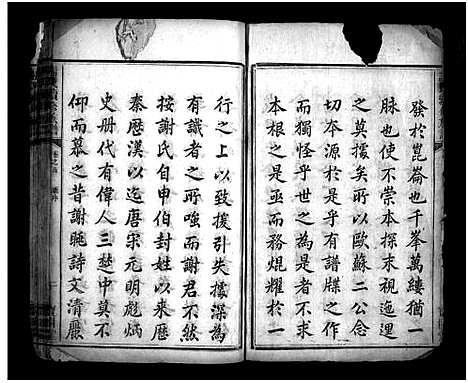 發於崑崙也千峯萬縷猶一
脉也使不崇本探末視迤邐
之莫據矣所以歐蘇二公念
切本源於是乎有譜牒之作
而獨怪乎世之為是者不求
本根之是亟而務焜耀於一
行之上以致援引失據深為
有識者之所嗤而謝君不然
按謝氏自申伯封姓以來歷
秦歷漢以迄唐宋元明彪炳
史册代有偉人三楚中莫不
仰而慕之昔謝眺詩文清麗